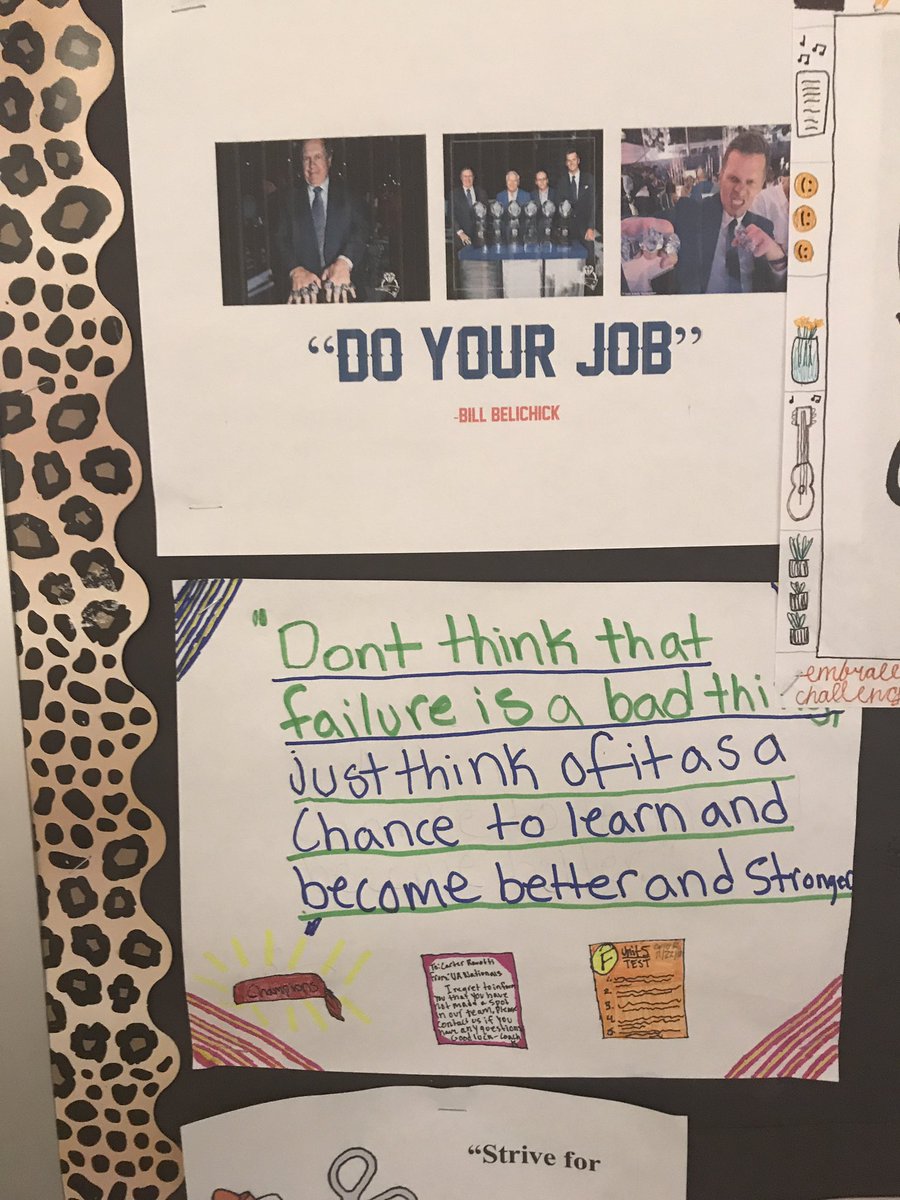 “DO YOUR JOB”
-BILL BELICHICK
"Dont think that
failure is a bad thi
just think of it as a
Chance to learn and
become better and Stronger
"
-embrace
challeng
Champions
To: Carter
From: UA Nationals
I regret to inform
you that you have
not made a spot
in our team. Please
contact us if you
have any questions
Good luck - Coach
F
Unit 5
TEST
1.
2.
3.
4.
5.
“Strive for